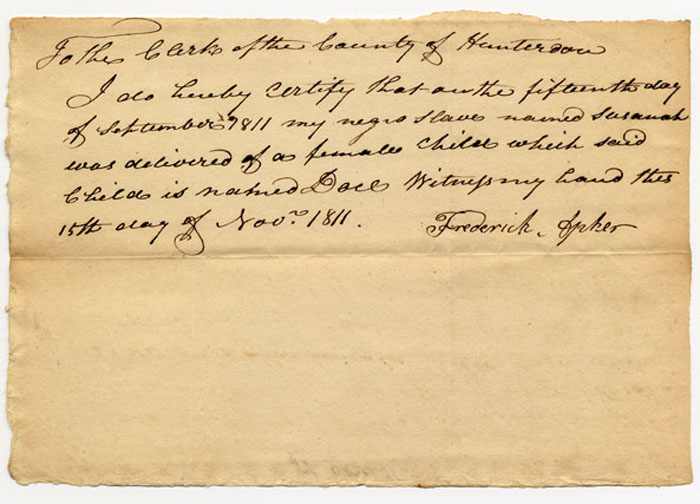 To the Clerk of the County of Hunterdon
I do hereby certify that on the fifteenth day
of September 1811 my negro slave named Susanah
was delivered of a female Child which said
Child is named Dace Witness my hand this
15th day of Novr. 1811.
Frederick Apker